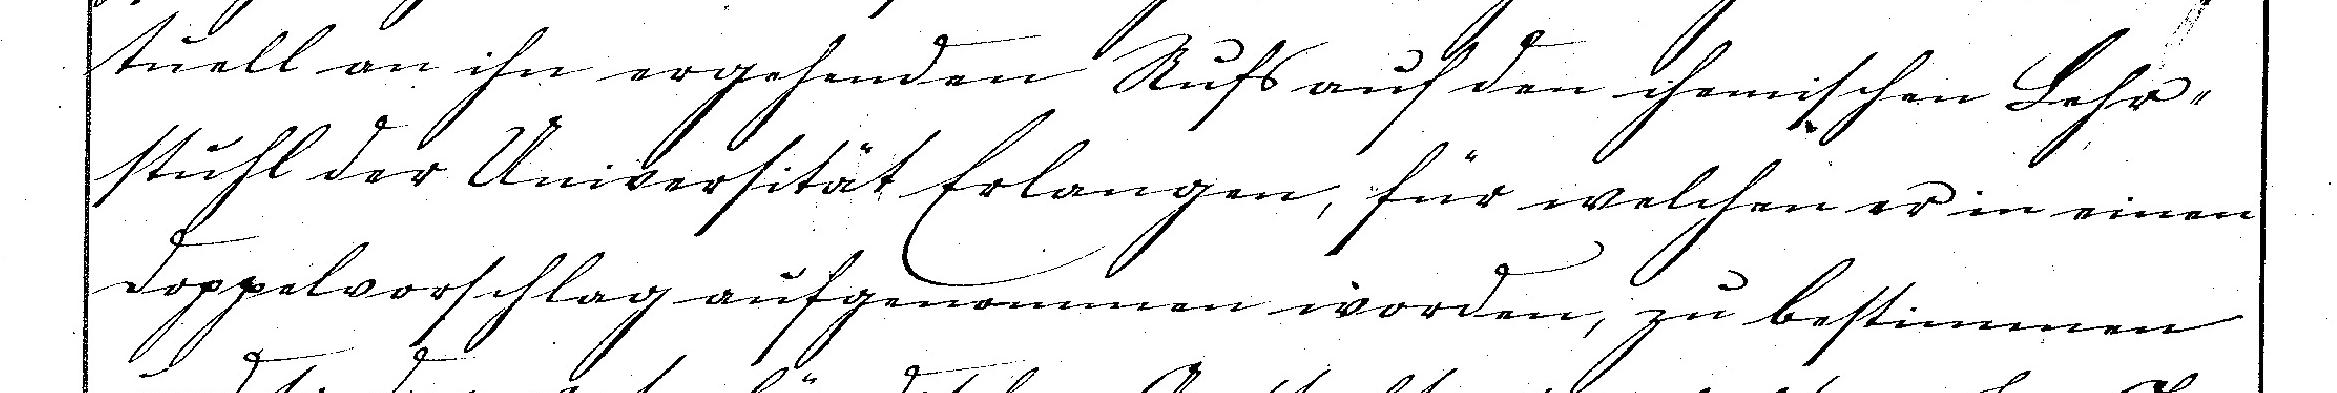 tuell an ihn ergehenden Rufs auf den chemischen Lehr-
stuhl der Universität Erlangen, für welchen er in einen
Doppelvorschlag aufgenommen worden, zu bestimmen